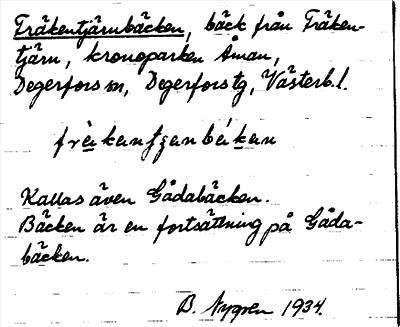 Fräkentjärnbäcken, bäck från Fräken-
tjärn, kronoparken Åman,
Degerfors sn, Degerfors tg, Västerb. l.
Kallas även Gådabäcken.
Bäcken är en fortsättning på Gåda-
bäcken.
B. Nygren 1934.